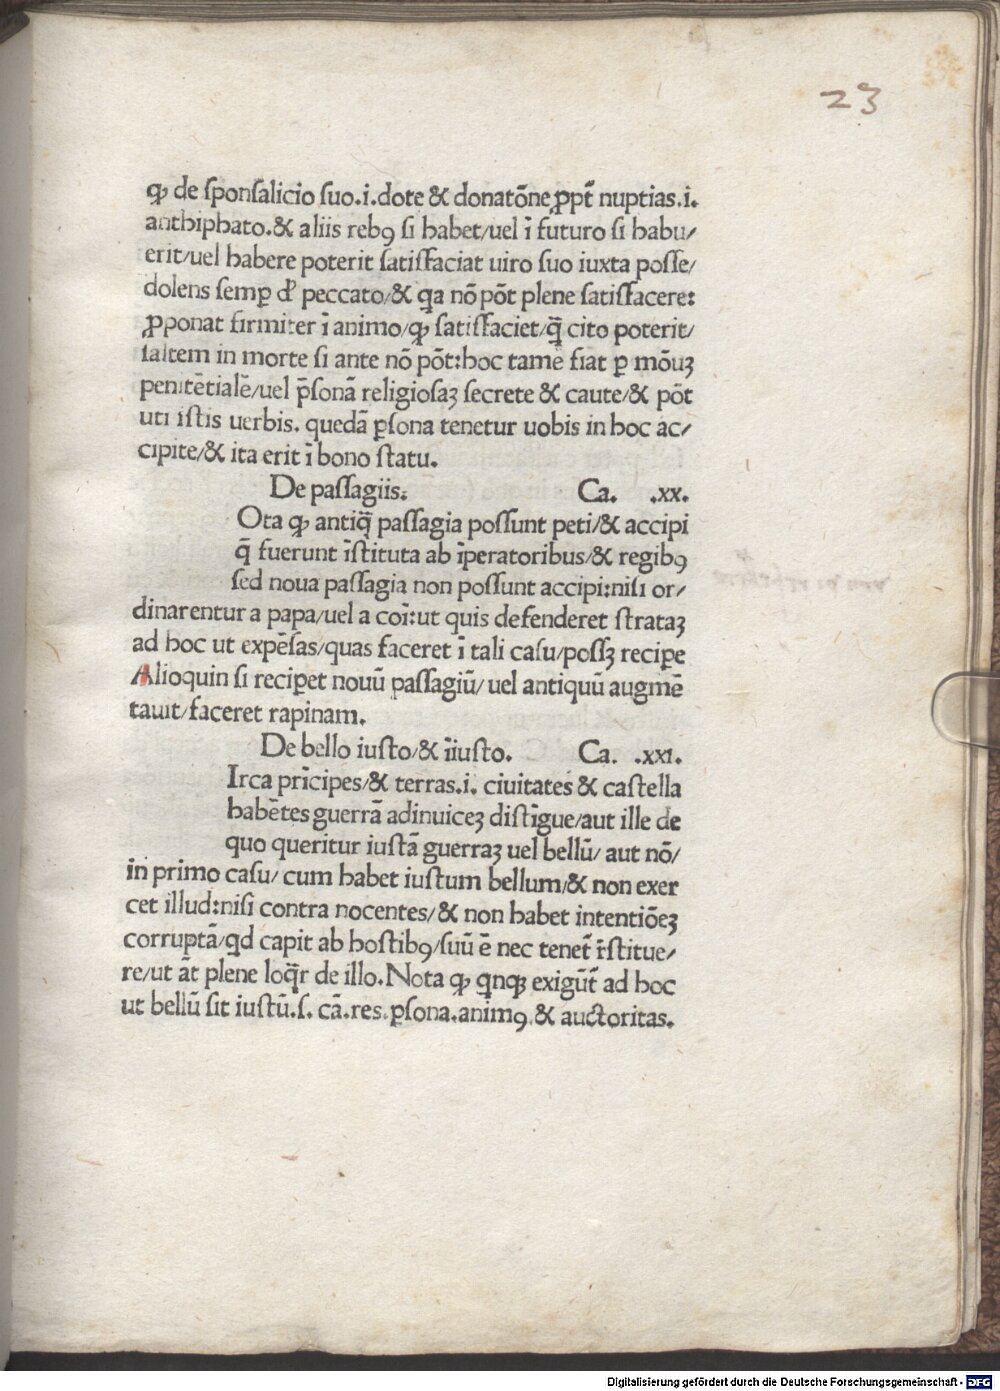 23
ꝙ de ſponſalicio ſuo.i.dote & donatõne ꝓpt̃ nuptias.i.
anthiphato.& aliis rebꝯ ſi habet/uel ĩ futuro ſi habu/
erit/uel habere poterit ſatiſfaciat uiro ſuo iuxta poſſe/
dolens ſemꝑ d̛ peccato/& qa nõ põt plene ſatiſfacere:
ꝓponat firmiter ĩ animo/ꝙ ſatiſfaciet/q̃ cito poterit/
ſaltem in morte ſi ante nõ põt:hoc tamẽ fiat ꝑ mõuꝫ
penitẽtialẽ/uel p̃ſonã religioſaꝫ ſecrete & caute/& põt
uti iſtis uerbis. quedã ꝑſona tenetur uobis in hoc ac/
cipite/& ita erit ĩ bono ſtatu.
De paſſagiis. Ca. .xx.
Ota ꝙ antiq̃ paſſagia poſſunt peti/& accipi
q̃ fuerunt ĩſtituta ab ĩperatoribus/& regibꝯ
ſed noua paſſagia non poſſunt accipi:niſi or/
dinarentur a papa/uel a coĩ:ut quis defenderet ſtrataꝫ
ad hoc ut expẽſas/quas faceret ĩ tali caſu/poſſꝫ recipe
Alioquin ſi reciꝑet nouũ paſſagiũ/uel antiquũ augmẽ
tauit/faceret rapinam.
De bello iuſto/& ĩiuſto. Ca. .xxi.
Irca prĩcipes/& terras.i. ciuitates & caſtella
habẽtes guerrã adinuiceꝫ diſtĩgue/aut ille de
quo queritur iuſtã guerraꝫ uel bellũ/ aut nõ/
in primo caſu/ cum habet iuſtum bellum/& non exer
cet illud:niſi contra nocentes/& non habet intentiõeꝫ
corruptã/qd capit ab hoſtibꝯ/ſuũ ẽ nec tenet̃ r̃ſtitue/
re/ut ãt plene loq̃r de illo.Nota ꝙ qnqꝫ exigũt̃ ad hoc
ut bellũ ſit iuſtũ.ſ. cã.res.ꝑſona.animꝯ.& auctoritas.
Digitalisierung gefördert durch die Deutsche Forschungsgemeinschaft - DFG